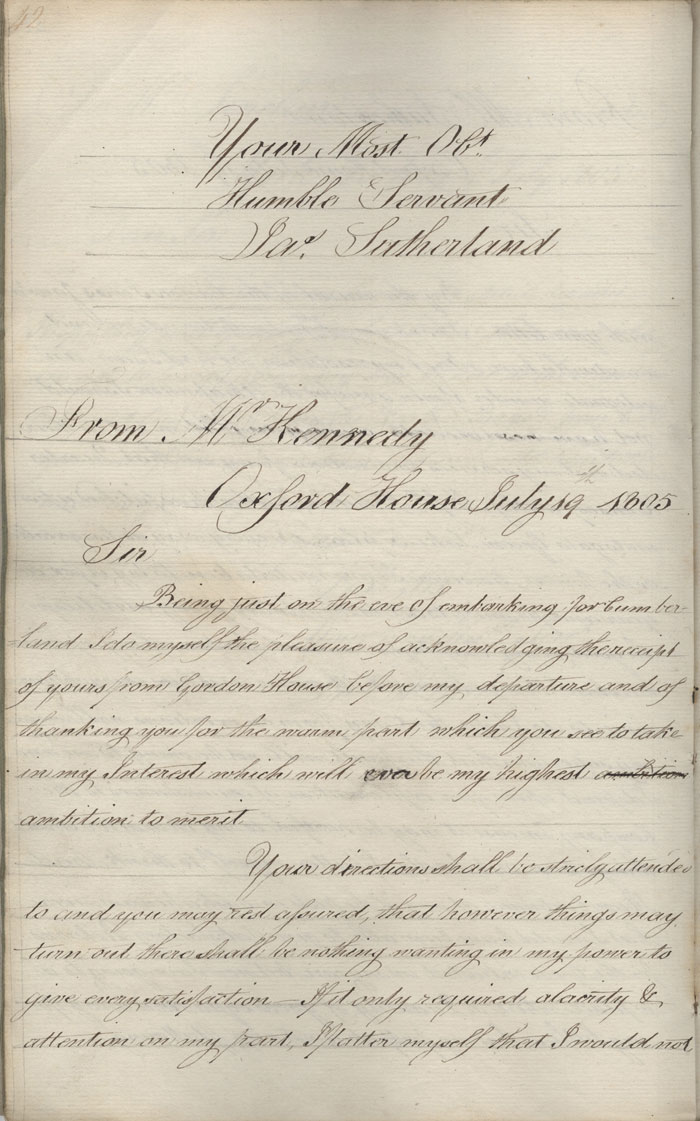 42
Your Most Obt.
Humble Servant
Jas. Sutherland
From Mr Kennedy
Oxford House July 19th 1805
Sir
Being just on the eve of embarking for Cumber-
land I do myself the pleasure of acknowledging the receipt
of yours from Gordon House before my departure and of
thanking you for the warm part which you see to take
in my Interest which will ever be my highest ambition
ambition to merit
Your directions shall be stricly attended
to and you may rest assured, that however things may
turn out there shall be nothing wanting in my power to
give every satisfaction — If it only required alacrity &
attention on my part, I flatter myself that I would not